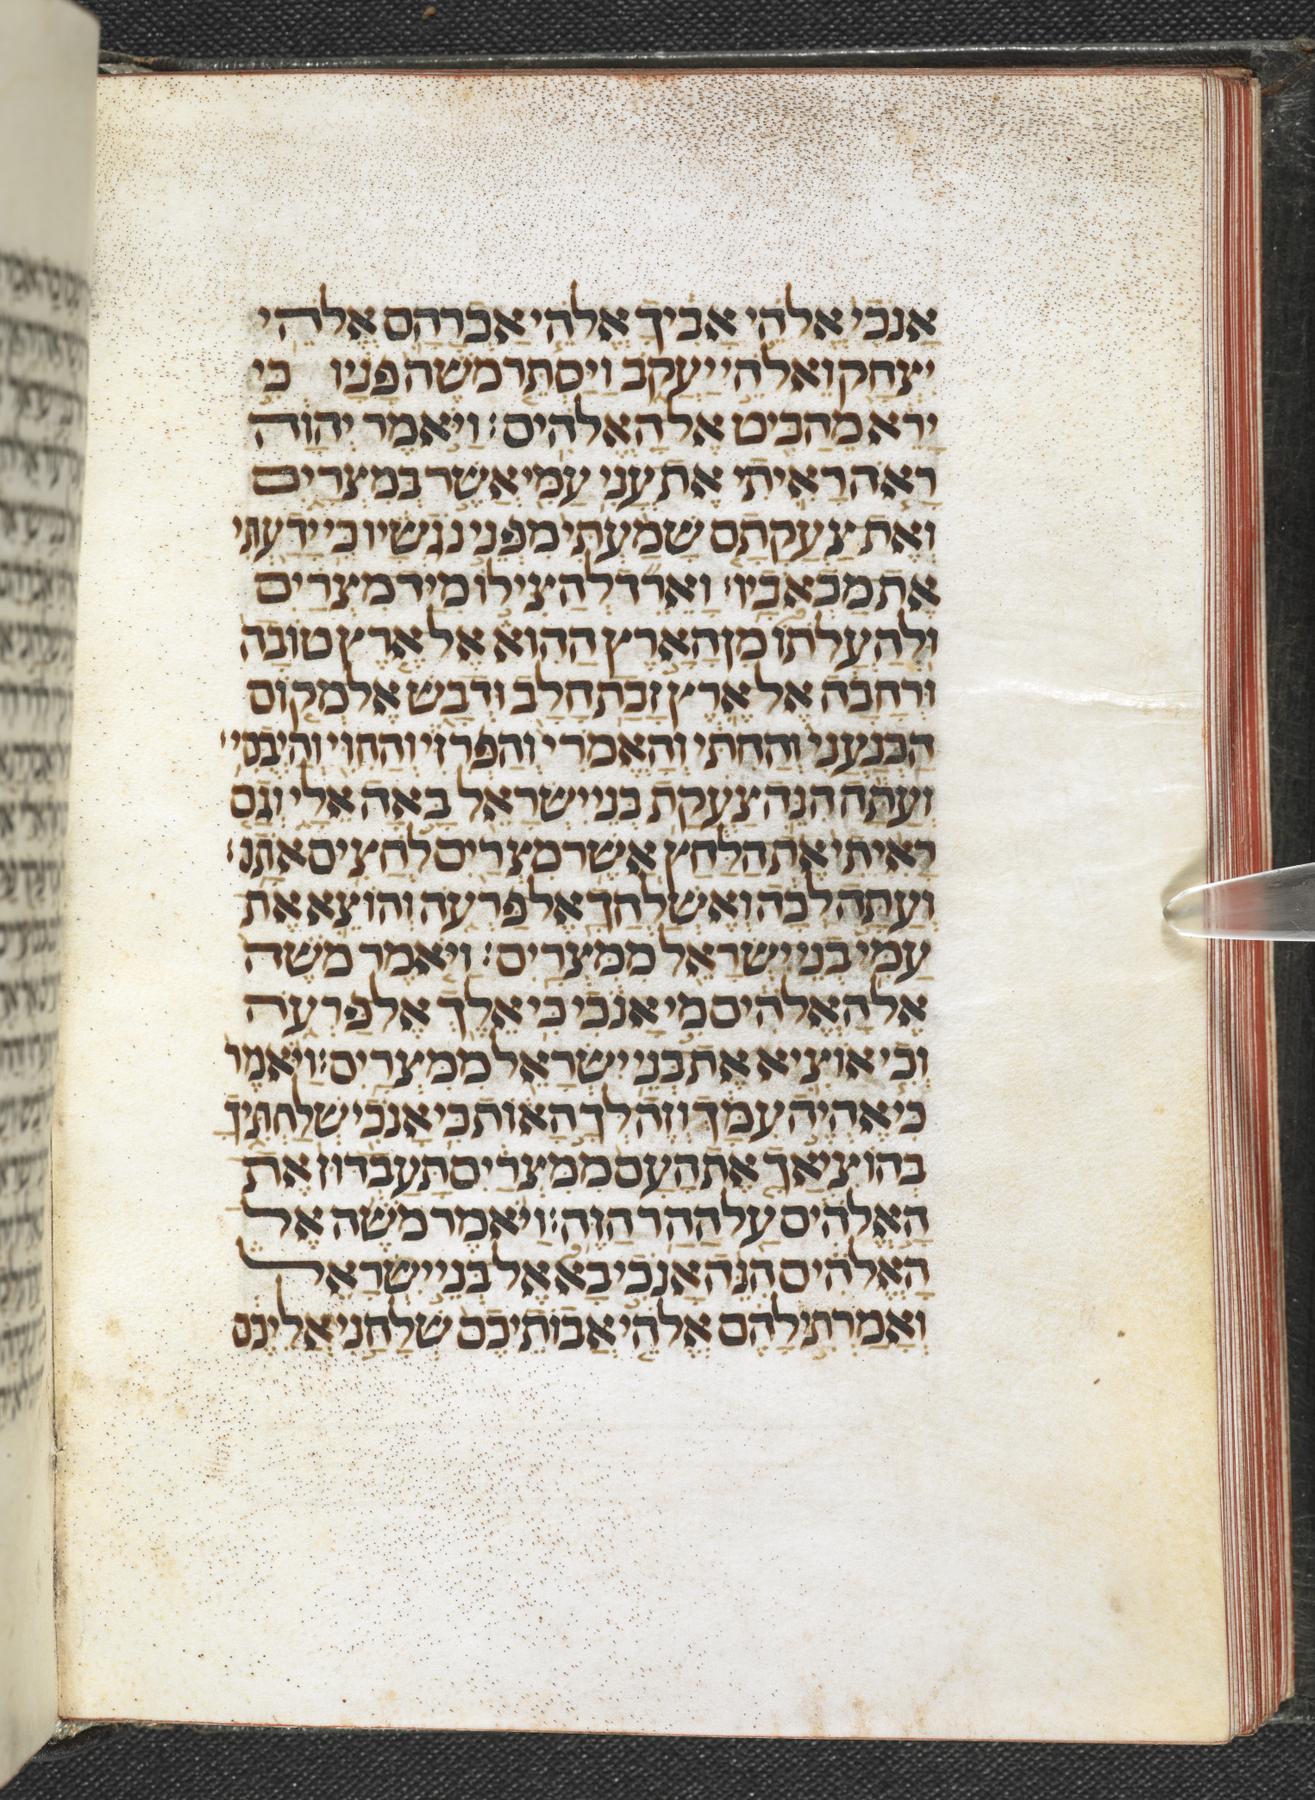 אָנֹכִי אֱלֹהֵי אָבִיךָ אֱלֹהֵי אַבְרָהָם אֱלֹהֵי
יִצְחָק וֵאלֹהֵי יַעֲקֹב וַיַּסְתֵּר מֹשֶׁה פָּנָיו כִּי
יָרֵא מֵהַבִּיט אֶל הָאֱלֹהִים׃ וַיֹּאמֶר יְהוָה
רָאֹה רָאִיתִי אֶת עֳנִי עַמִּי אֲשֶׁר בְּמִצְרָיִם
וְאֶת צַעֲקָתָם שָׁמַעְתִּי מִפְּנֵי נֹגְשָׂיו כִּי יָדַעְתִּי
אֶת מַכְאֹבָיו׃ וָאֵרֵד לְהַצִּילוֹ מִיַּד מִצְרַיִם
וּלְהַעֲלֹתוֹ מִן הָאָרֶץ הַהִוא אֶל אֶרֶץ טוֹבָה
וּרְחָבָה אֶל אֶרֶץ זָבַת חָלָב וּדְבָשׁ אֶל מְקוֹם
הַכְּנַעֲנִי וְהַחִתִּי וְהָאֱמֹרִי וְהַפְּרִזִּי וְהַחִוִּי וְהַיְבֻסִי׃
וְעַתָּה הִנֵּה צַעֲקַת בְּנֵי יִשְׂרָאֵל בָּאָה אֵלָי וְגַם
רָאִיתִי אֶת הַלַּחַץ אֲשֶׁר מִצְרַיִם לֹחֲצִים אֹתָם׃
וְעַתָּה לְכָה וְאֶשְׁלָחֲךָ אֶל פַּרְעֹה וְהוֹצֵא אֶת
עַמִּי בְנֵי יִשְׂרָאֵל מִמִּצְרָיִם׃ וַיֹּאמֶר מֹשֶׁה
אֶל הָאֱלֹהִים מִי אָנֹכִי כִּי אֵלֵךְ אֶל פַּרְעֹה
וְכִי אוֹצִיא אֶת בְּנֵי יִשְׂרָאֵל מִמִּצְרָיִם׃ וַיֹּאמֶר
כִּי אֶהְיֶה עִמָּךְ וְזֶה לְּךָ הָאוֹת כִּי אָנֹכִי שְׁלַחְתִּיךָ
בְּהוֹצִיאֲךָ אֶת הָעָם מִמִּצְרַיִם תַּעַבְדוּן אֶת
הָאֱלֹהִים עַל הָהָר הַזֶּה׃ וַיֹּאמֶר מֹשֶׁה אֶל
הָאֱלֹהִים הִנֵּה אָנֹכִי בָא אֶל בְּנֵי יִשְׂרָאֵל
וְאָמַרְתִּי לָהֶם אֱלֹהֵי אֲבוֹתֵיכֶם שְׁלָחַנִי אֲלֵיכֶם